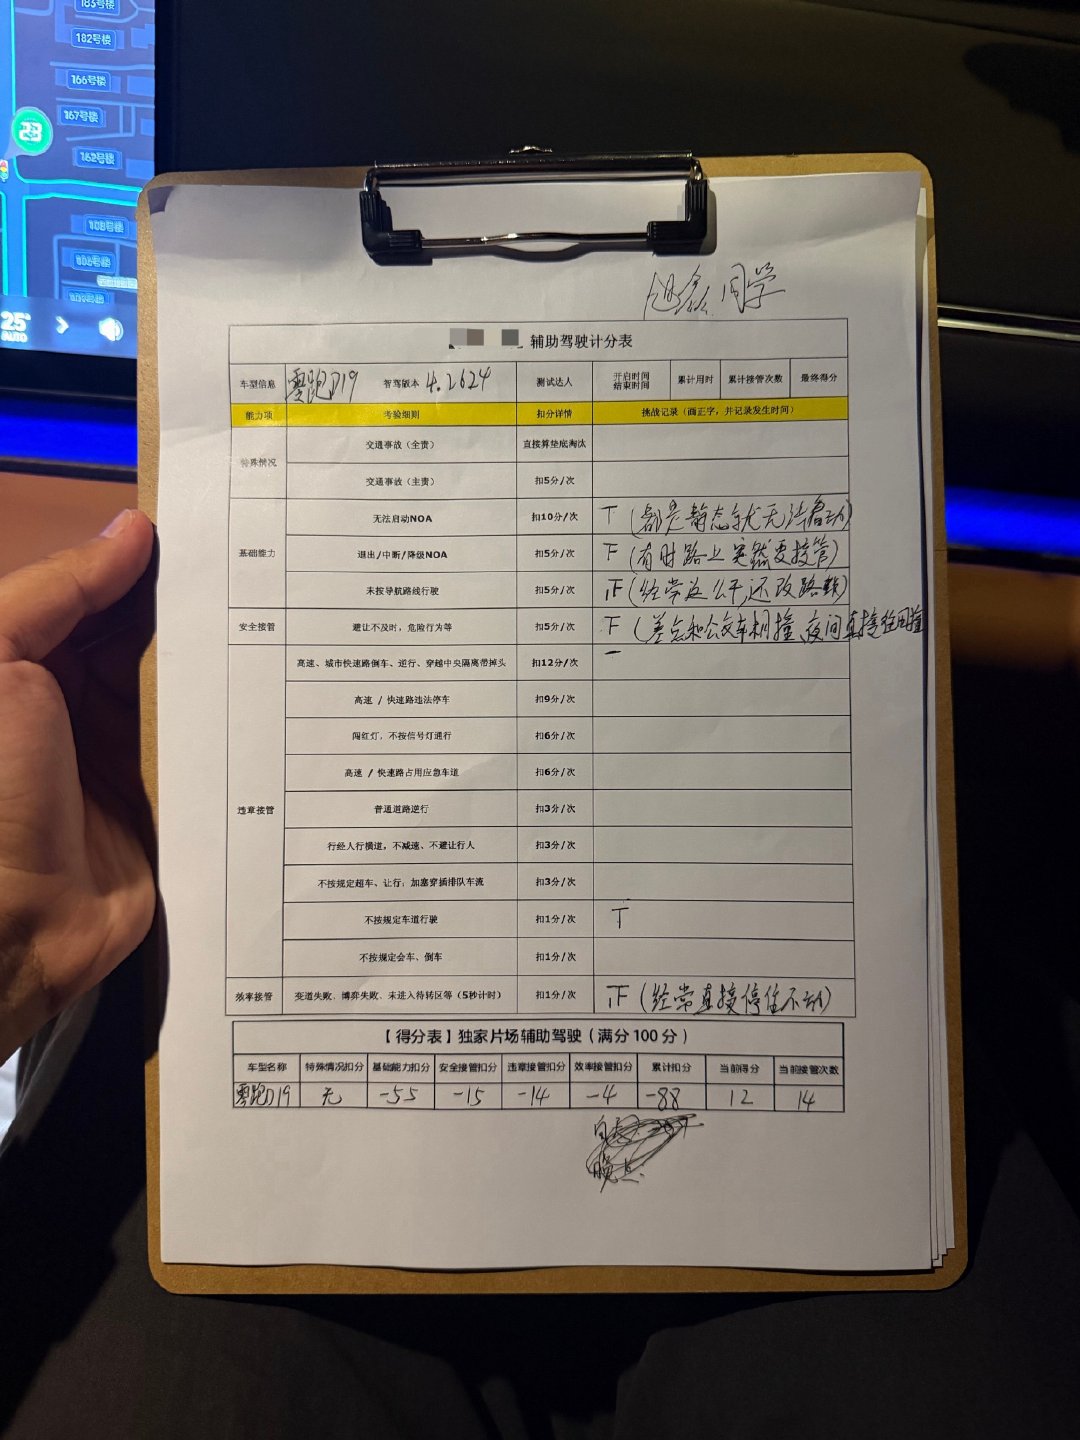 183号楼
182号楼
166号楼
167号楼
23
162号楼
108号楼
106号楼
25°
AUTO
同学
辅助驾驶计分表
车型信息 零跑D19 智驾版本 4.2624 测试达人 开启时间 结束时间 累计用时 累计接管次数 最终得分
能力项 考验细则 扣分详情 挑战记录（画正字，并记录发生时间）
特殊情况 交通事故（全责） 直接算垫底淘汰
交通事故（主责） 扣5分/次
基础能力 无法启动NOA 扣10分/次 丅（都是静态时候无法启动）
退出/中断/降级NOA 扣5分/次 下（有时路上突然要接管）
未按导航路线行驶 扣5分/次 正（经常这么干,还改路线）
安全接管 避让不及时，危险行为等 扣5分/次 下（差点和公交车相撞、夜间直接往困撞
违章接管 高速、城市快速路倒车、逆行、穿越中央隔离带掉头 扣12分/次 一
高速 / 快速路违法停车 扣9分/次
闯红灯，不按信号灯通行 扣6分/次
高速 / 快速路占用应急车道 扣6分/次
普通道路逆行 扣3分/次
行经人行横道，不减速、不避让行人 扣3分/次
不按规定超车、让行；加塞穿插排队车流 扣3分/次
不按规定车道行驶 扣1分/次 丅
不按规定会车、倒车 扣1分/次
效率接管 变道失败、博弈失败、未进入待转区等（5秒计时） 扣1分/次 正（经常直接停住不动）
【得分表】独家片场辅助驾驶（满分100分）
车型名称 特殊情况扣分 基础能力扣分 安全接管扣分 违章接管扣分 效率接管扣分 累计扣分 当前得分 当前接管次数
零跑D19 无 -55 -15 -14 -4 -88 12 14